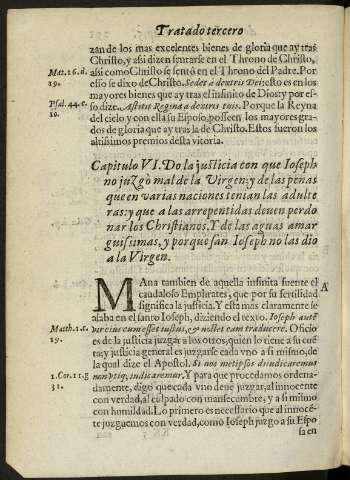 Tratado tercero
zan de los mas excelentes bienes de gloria que ay tras
Christo, y assi dizen sentarse en el Throno de Christo,
Mat. 16. d. 19.
assi como Christo se sentò en el Throno del Padre. Por
esso se dixo de Christo. Sedet a dextris Dei; esto es en los
mayores bienes que ay tras el infinito de Dios: y por es-
Psal. 44. c. 10.
so dize. Astitit Regina a dextris tuis. Porque la Reyna
del cielo y con ella su Esposo, posseen los mayores gra-
dos de gloria que ay tras la de Christo. Estos fueron los
altissimos premios desta vitoria.
Capitulo VI. De la justicia con que Ioseph
no juzgò mal de la Virgen: y de las penas
que en varias naciones tenian las adulte
ras: y que a las arrepentidas deuen perdo
nar los Christianos. Y de las aguas amar
guissimas, y porque san Ioseph no las dio
a la Virgen.
MAna tambien de aquella infinita fuente el
A
caudaloso Emphrates, que por su fertilidad
significa la justicia. Y esta mas claramente se
alaba en el santo Ioseph, diziendo el texto. Ioseph autē
Matth. 1. c. 19.
vir eius cum esset iustus, & nollet eam traducere. Oficio
es de la justicia juzgar a los otros, quien lo tiene a su cuē
ta; y justicia general es juzgarse cada vno a si mismo, de
la qual dize el Apostol. Si nos metipsos diiudicaremus
1. Cor. 11. g 31.
non vtiq; iudicaremur. Y para que procedamos ordena-
damente, digo que cada vno deue juzgar, al innocente
con verdad, al culpado con mansedumbre, y a si mismo
con humildad. Lo primero es necessario que al innocē-
te juzguemos con verdad, como Ioseph juzgo a su Espo
sa en